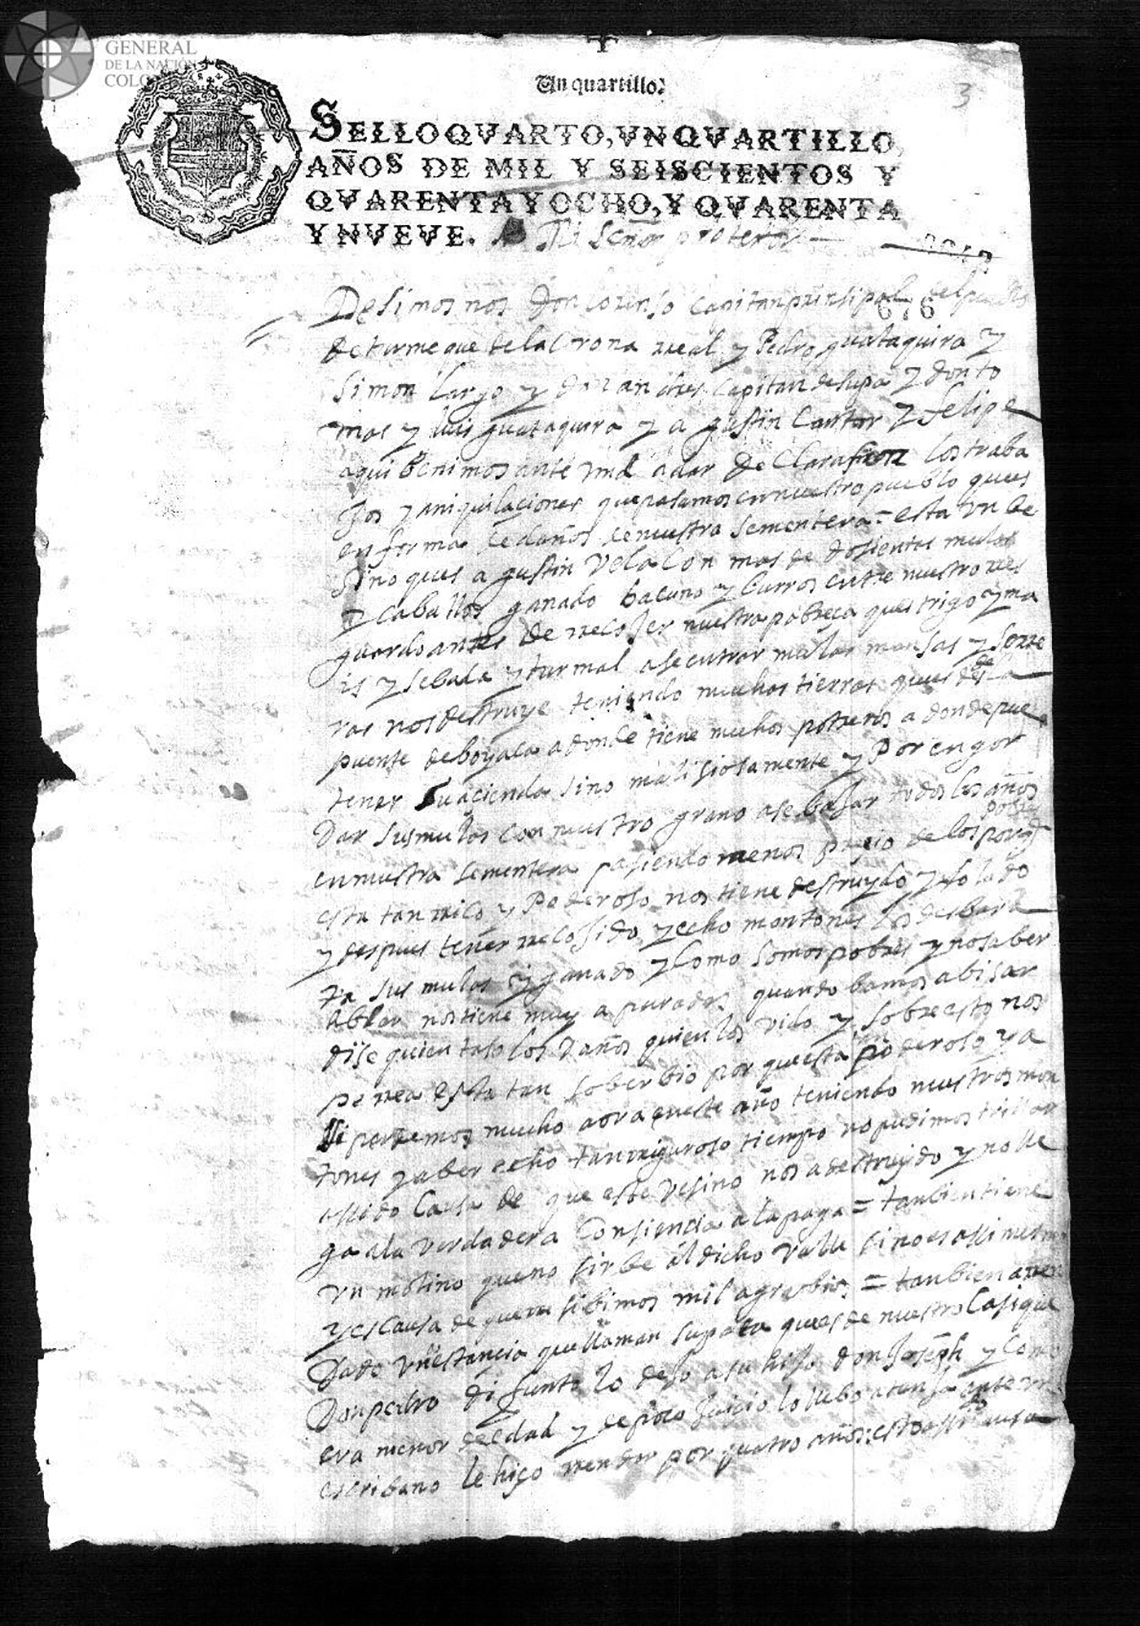 GENERAL
DE LA NACIÓN
COLO
Un quartillo.
3
SELLO QVARTO, VN QVARTILLO,
AÑOS DE MIL Y SEISCIENTOS Y
QVARENTA Y OCHO, Y QVARENTA
Y NVEVE. Mi señor protetor
676
Desimos nos don Lorenso Capitan prinsipal del pueblo
de turmeque de la Corona rreal y Pedro guataquira y
Simon Largo y don andres Capitan de supa y don to
mas y luis guataquira y a gustin Cantor y felipe
aqui benimos ante vmd a dar declarasion los traba
jos y aniquilaciones que pasamos en nuestro pueblo ques
en forma de daños de nuestra sementera = esta un be
sino ques a gustin Vela con mas de dosientas mulas
y caballos ganado bacuno y burros entre nuestro rres
guardo antes de rrecojer nuestra pobreça ques trigo y ma
is y sebada y turmas ase entrar mulas mansas y serre
ras nos destruye teniendo muchas tierras ques desde la
puente de boyaca a donde tiene muchos potreros a donde pue
tener su acienda sino malisiosamente y Por engor
dar sus mulas con nuestro grano ase bajar todos los años
en nuestra sementera asiendo menos presio de los pobres porq
esta tan rrico y Poderoso nos tiene destruydo y asolado
y despues tener rrecojido y echo montones los desbara
ta sus mulas y ganado y Como somos pobres y no saber
ablar nos tiene muy apurados quando bamos abisar
dise quien taso los daños quien los vido y sobre esto nos
pe rrea esta tan soberbio por que esta tan poderoso y a
si perdemos mucho aora queste año teniendo nuestros mon
tones y aber echo tan rriguroso tiempo no pudimos trillar
a sido Causa de que este vesino nos a destruydo y no lle
ga a la verdadera Consiencia a la paga = tanbien tiene
un molino que no sirbe al dicho valle sino es asi mesmo
y es causa de que rresibimos mil agrabios = tanbien a rren
dado vn estancia que llaman supata ques de nuestro Casique
Don pedro difunto lo dejo a su hijo don Joseph y Como
era menor de edad y de poco juicio lo llebo a tunja ante un
escribano le hiço rrendar por quatro años: esto